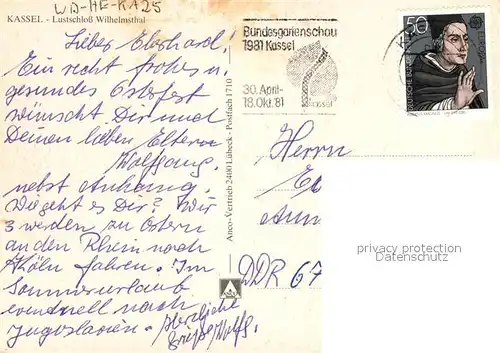 WD-HE-KA25
KASSEL - Lustschloß Wilhelmsthal
Lieber Eberhard,
Ein recht frohes u.
gesundes Osterfest
wünscht Dir und
Deinen lieben Eltern
Wolfgang,
nebst Anhang.
Wie geht es Dir? Wir
3 werden zu Ostern
an den Rhein nach
Köln fahren. Im
Sommerurlaub
eventuell nach
Jugoslavien. Herzliche
Grüße Wolfg.
Anco-Vertrieb 2400 Lübeck - Postfach 1710
ANCO
Bundesgartenschau
1981 Kassel
30. April-
18. Okt. '81
kassel
50
DEUTSCHE BUNDES
Herrn
DDR 67
privacy protection
Datenschutz